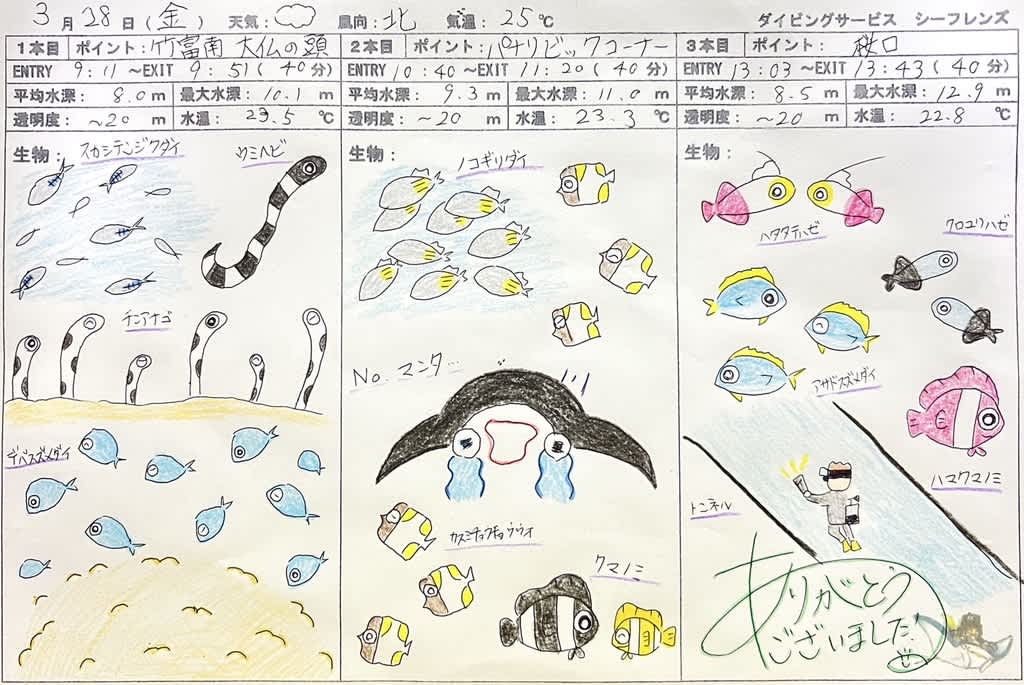 3月28日(金) 天気: 風向:北 気温:25℃ ダイビングサービス シーフレンズ
1本目 ポイント:竹富南 大仏の頭
ENTRY 9:11 ~EXIT 9:51(40分)
平均水深: 8.0 m 最大水深: 10.1 m
透明度: ~20 m 水温: 23.5 ℃
生物:
スカシテンジクダイ
ウミヘビ
チンアナゴ
デバスズメダイ
2本目 ポイント:パナリビックコーナー
ENTRY 10:40~EXIT 11:20(40分)
平均水深: 9.3 m 最大水深: 11.0 m
透明度: ~20 m 水温: 23.3 ℃
生物:
ノコギリダイ
No.マンタ…
カスミチョウチョウウオ
クマノミ
3本目 ポイント:秩口
ENTRY 13:03~EXIT 13:43(40分)
平均水深: 8.5 m 最大水深: 12.9 m
透明度: ~20 m 水温: 22.8 ℃
生物:
ハタタテハゼ
クロユリハゼ
アサドスズメダイ
ハマクマノミ
トンネル
ありがとう
ございました!